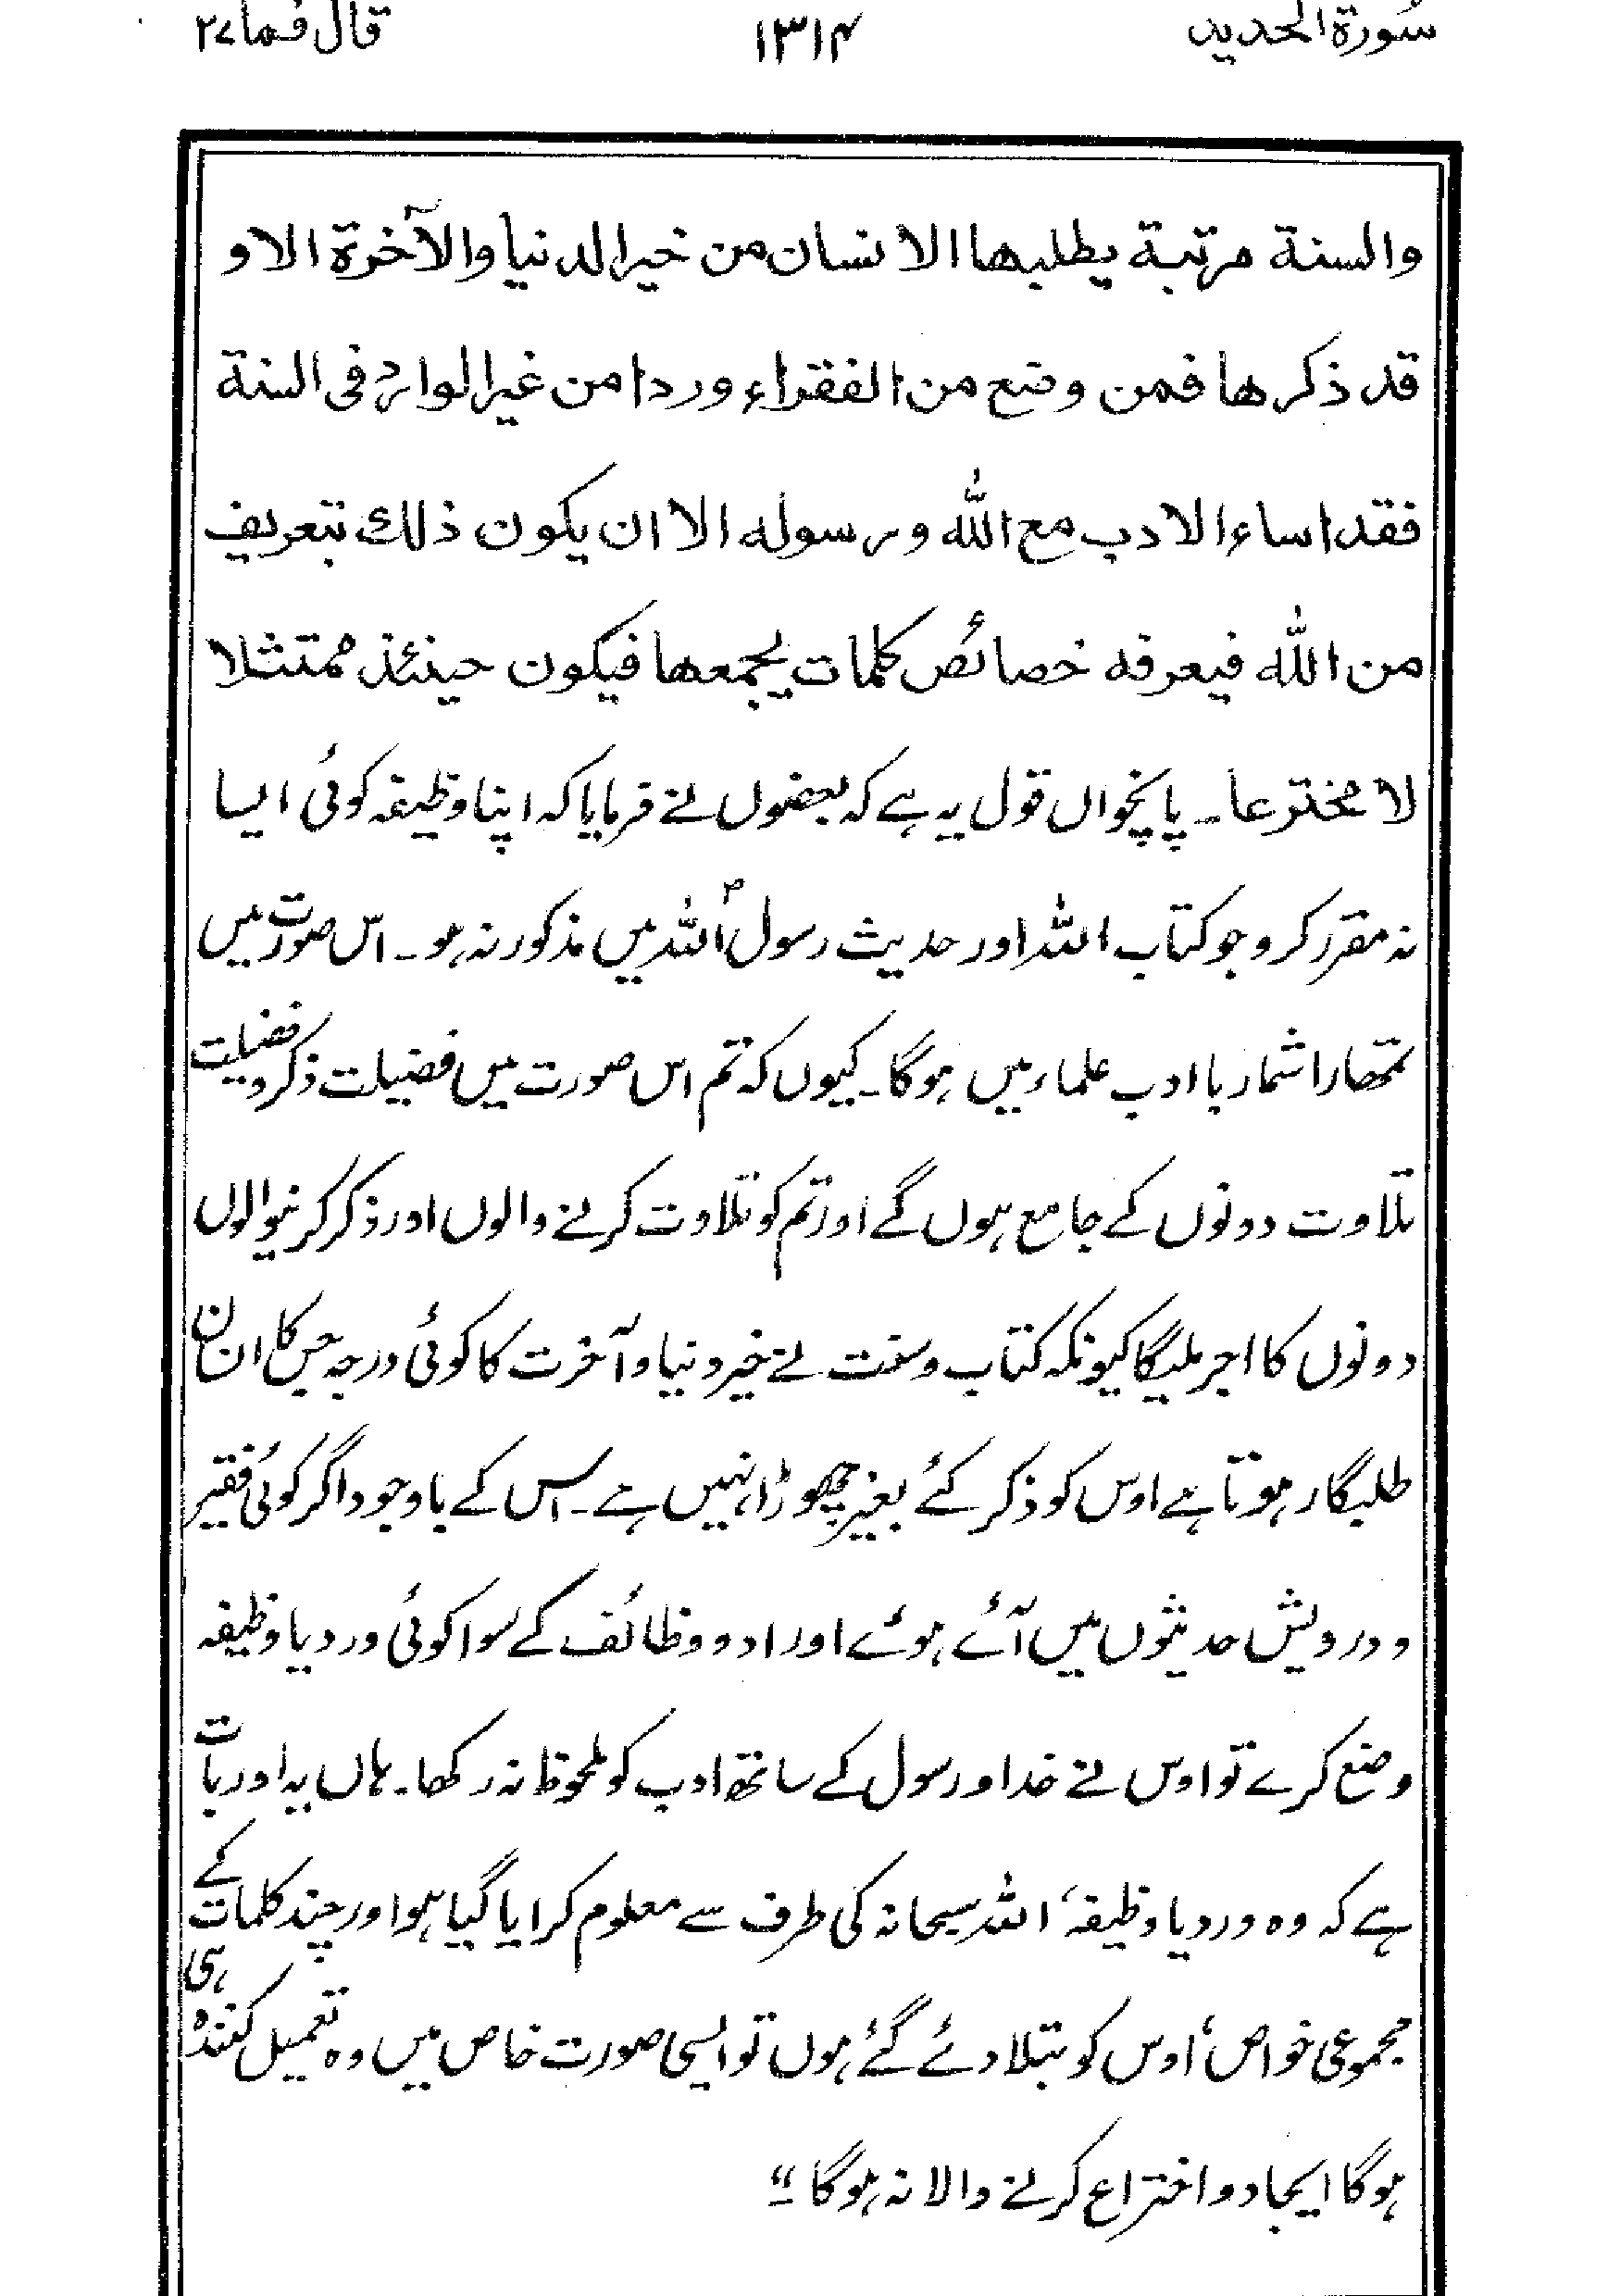 سُورة الحديد ۱۳۱۴ قال فما ۲۷
والسنة مرتبة يطلبها الانسان من خير الدنيا والآخرة الا و
قد ذكرها فمن وضع من الفقراء وردا من غير الوارد فى السنة
فقد اساء الادب مع الله ورسوله الا ان يكون ذلك بتعريف
من الله فيعرفه خصائص كلمات يجمعها فيكون حينئذ ممتثلا
لا مخترعا۔ پانچواں قول یہ ہے کہ بعضوں نے فرمایا کہ اپنا وظیفہ کوئی ایسا
نہ مقرر کرو جو کتاب اللہ اور حدیث رسولؐ اللہ میں مذکور نہ ہو۔ اس صورت میں
تمھارا شمار با ادب علماء میں ہوگا۔ کیوں کہ تم اس صورت میں فضیلت ذکر و فضیلت
تلاوت دونوں کے جامع ہوں گے اور تم کو تلاوت کرنے والوں اور ذکر کرنیوالوں
دونوں کا اجر ملیگا کیونکہ کتاب و سنت نے خیر دنیا و آخرت کا کوئی درجہ جس کا انسان
طلبگار ہوتا ہے اوس کو ذکر کئے بغیر چھوڑا نہیں ہے۔ اس کے باوجود اگر کوئی فقیر
و درویش حدیثوں میں آئے ہوئے اوراد و وظائف کے سوا کوئی ورد یا وظیفہ
وضع کرے تو اوس نے خدا و رسول کے ساتھ ادب کو ملحوظ نہ رکھا۔ ہاں یہ اور بات
ہے کہ وہ ورد یا وظیفہ، اللہ سبحانہ کی طرف سے معلوم کرایا گیا ہو اور چند کلمات کے
مجموعی خواص، اوس کو بتلا دئے گئے ہوں تو ایسی صورت خاص میں وہ تعمیل کنندہ ہی
ہوگا ایجاد و اختراع کرنے والا نہ ہوگا۔“